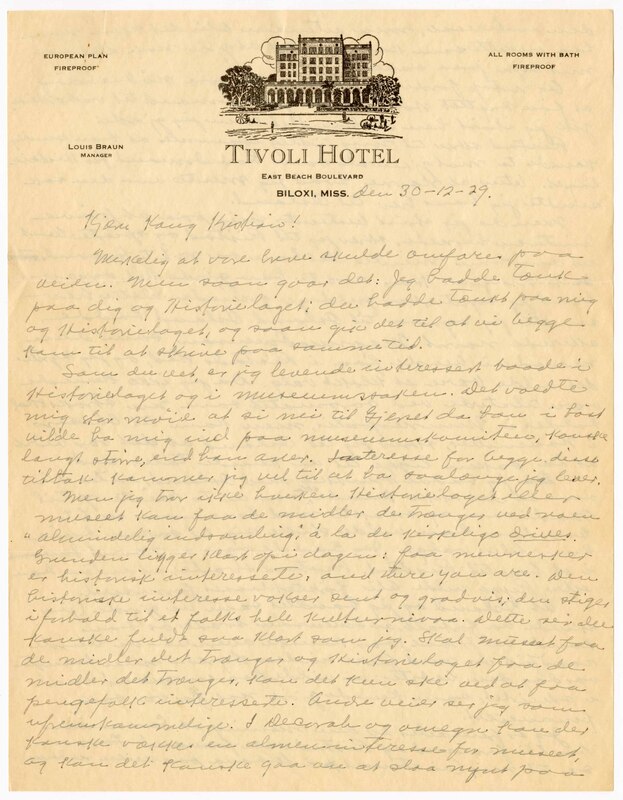 EUROPEAN PLAN
FIREPROOF
ALL ROOMS WITH BATH
FIREPROOF
LOUIS BRAUN
MANAGER
TIVOLI HOTEL
EAST BEACH BOULEVARD
BILOXI, MISS. den 30-12-29.
Kjere Kong Kristian!
Merkelig at vore breve skulde omfares paa
veien. Men saan gaar det: Jeg hadde tænkt
paa dig og Historielaget; du hadde tænkt paa mig
og Historielaget, og saan gik det til at vi begge
kom til at skrive paa samme tid.
Som du vet, er jeg levende interessert baade i
Historielaget og i museumssaken. Det voldte
mig stor møie at si nei til Gjerset da han i høst
vilde ha mig ind paa museumskomiteen, kanske
langt større, end han aner. Interesse for begge disse
tiltak kommer jeg vel til at ha saalænge jeg lever.
Men jeg tror ikke hverken Historielaget eller
museet kan faa de midler de trænger ved noen
"almindelig indsamling," à la de kirkelige Drives.
Grunden ligger klart op i dagen: faa mennesker
er historisk interesserte, and there you are. Den
historiske interesse vokser sent og gradvis; den stiger
i forhold til et folks hele kulturnivaa. Dette ser du
kanske fuldt saa klart som jeg. Skal museet faa
de midler det trænger og Historielaget faa de
midler det trænger, kan det kun ske ved at faa
pengefolk interesserte. Andre veier ser jeg som
ufremkommelige. I Decorah og omegn kan der
kanske vækkes en almeninteresse for museet,
og kan det kanske gaa an at slaa mynt paa